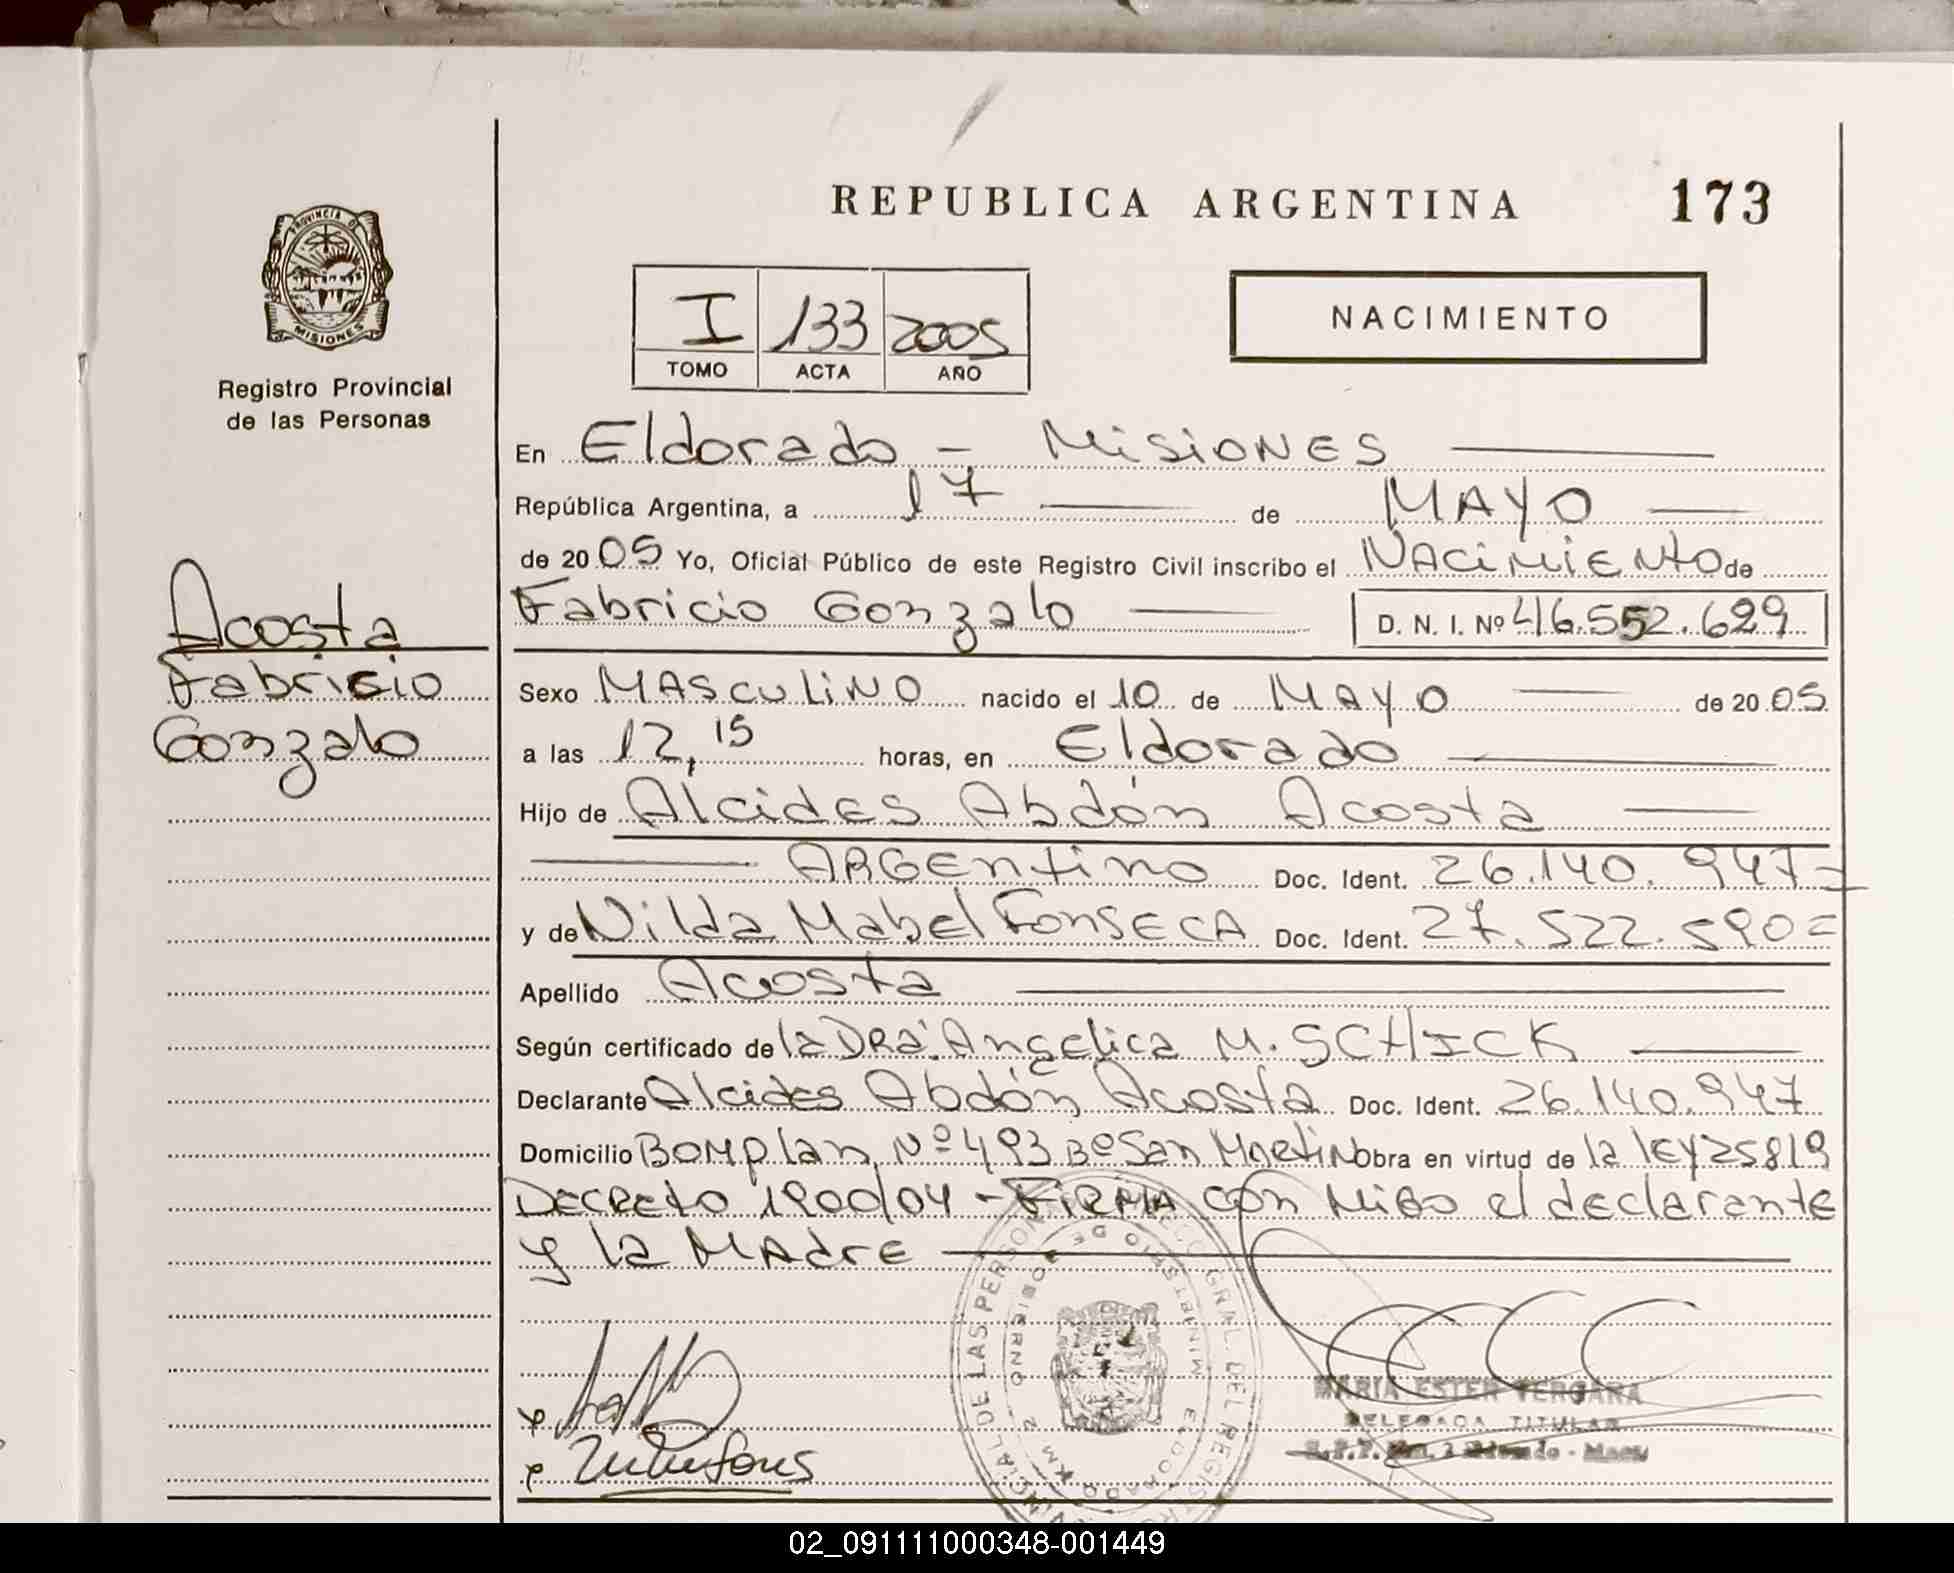 REPUBLICA ARGENTINA 173
PROVINCIA DE
MISIONES
Registro Provincial
de las Personas
I 133 2005
TOMO ACTA AÑO
NACIMIENTO
En Eldorado - Misiones
República Argentina, a 17 de MAYO
de 2005 Yo, Oficial Público de este Registro Civil inscribo el NACimiENto de
Fabricio Gonzalo D. N. I. Nº 46.552.629
Acosta
Fabricio
Gonzalo
Sexo MASculiNO nacido el 10 de MAYO de 2005
a las 12,15 horas, en Eldorado
Hijo de Alcides Abdón Acosta
ARGEntino Doc. Ident. 26.140.947=
y de Nilda Mabel FonsECA Doc. Ident. 27.522.590=
Apellido Acosta
Según certificado de la DRa. Angelica M. SCHICK
Declarante Alcides Abdón Acosta Doc. Ident. 26.140.947
Domicilio BOMplan Nº 493 Bº San MartiN Obra en virtud de la lEY 25819
DECREto 1900/04 - FIRMA con MiGo el declarante
y la MAdrE
MARIA ESTER VERGARA
DELEGADA TITULAR
02_091111000348-001449